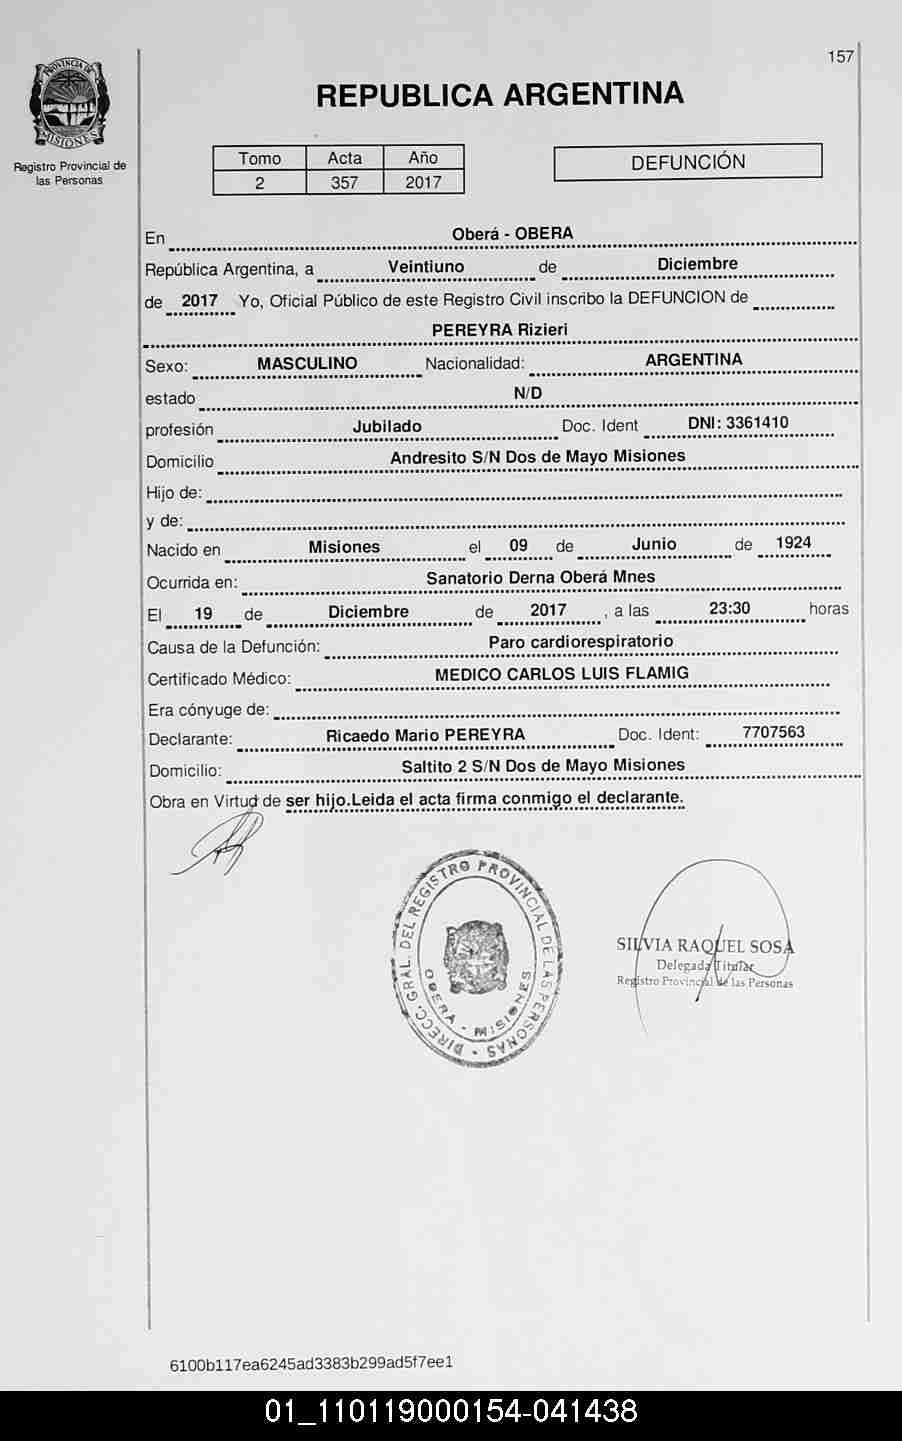 157
PROVINCIA DE
MISIONES
Registro Provincial de
las Personas
REPUBLICA ARGENTINA
Tomo Acta Año
2 357 2017
DEFUNCIÓN
En Oberá - OBERA
República Argentina, a Veintiuno de Diciembre
de 2017 Yo, Oficial Público de este Registro Civil inscribo la DEFUNCION de
PEREYRA Rizieri
Sexo: MASCULINO Nacionalidad: ARGENTINA
estado N/D
profesión Jubilado Doc. Ident DNI: 3361410
Domicilio Andresito S/N Dos de Mayo Misiones
Hijo de:
y de:
Nacido en Misiones el 09 de Junio de 1924
Ocurrida en: Sanatorio Derna Oberá Mnes
El 19 de Diciembre de 2017 , a las 23:30 horas
Causa de la Defunción: Paro cardiorespiratorio
Certificado Médico: MEDICO CARLOS LUIS FLAMIG
Era cónyuge de:
Declarante: Ricaedo Mario PEREYRA Doc. Ident: 7707563
Domicilio: Saltito 2 S/N Dos de Mayo Misiones
Obra en Virtud de ser hijo.Leida el acta firma conmigo el declarante.
DIRECC. GRAL. DEL REGISTRO PROVINCIAL DE LAS PERSONAS
OBERA - MISIONES
SILVIA RAQUEL SOSA
Delegada Titular
Registro Provincial de las Personas
6100b117ea6245ad3383b299ad5f7ee1
01_110119000154-041438